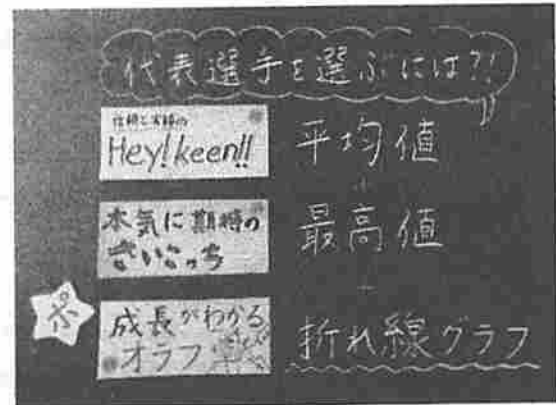 代表選手を選ぶには?!
信頼と実績の
Hey!keen!!
平均値
+
本気に期待の
さいこっち
最高値
+
ポ
成長がわかる
オラフ
折れ線グラフ